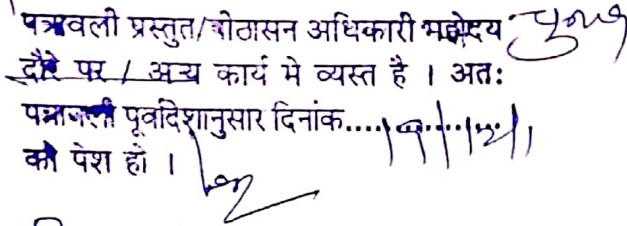 पत्रावली प्रस्तुत/पीठासन अधिकारी महोदय
दौरे पर / अन्य कार्य मे व्यस्त है । अतः
पत्रावली पूर्वादेशानुसार दिनांक....
को पेश हो ।